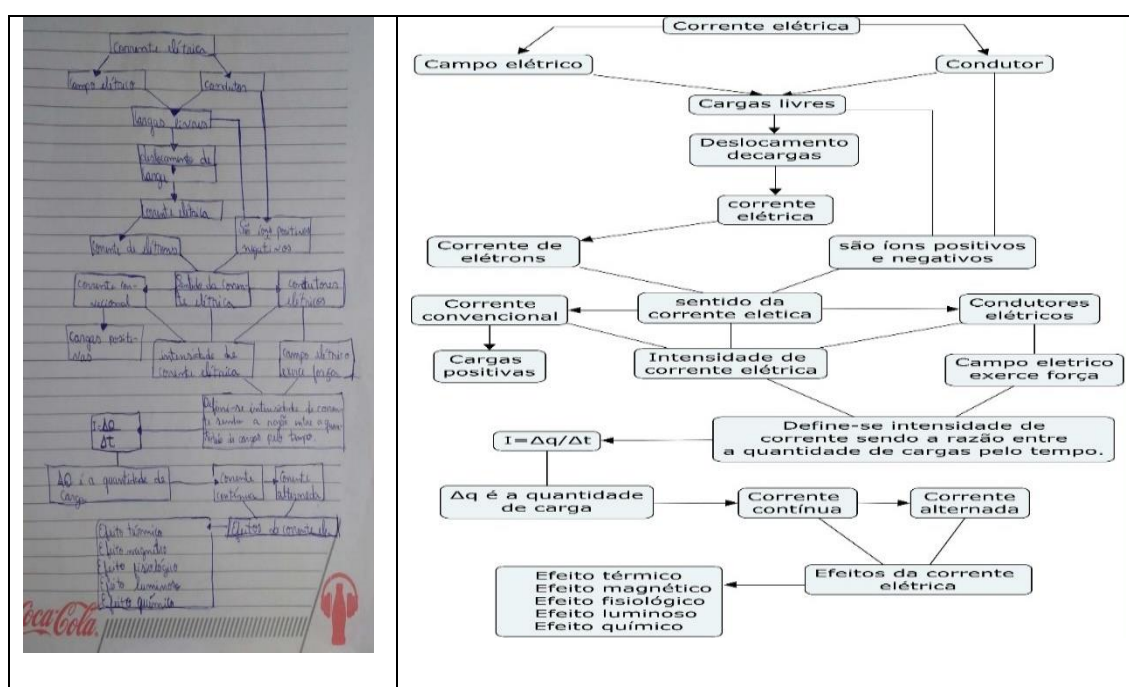 Corrente elétrica
Campo elétrico
Condutor
Cargas livres
Deslocamento de
carga
Corrente elétrica
São íons positivos
negativos
Corrente de elétrons
Corrente con-
vecional
Sentido da corren-
te elétrica
condutores
elétricos
Cargas positi-
vas
intensidade de
corrente elétrica
Campo elétrico
exerce força
Defini-se intensidade de corren-
te sendo a razão entre a quan-
tidade de cargas pelo tempo.
I=ΔQ
Δt
ΔQ é a quantidade de
Carga
Corrente
contínua
Corrente
alternada
Efeitos da corrente ele
Efeito térmico
Efeito magnético
Efeito fisiológico
Efeito luminoso
Efeito químico
Coca-Cola
Corrente elétrica
Campo elétrico
Condutor
Cargas livres
Deslocamento
decargas
corrente
elétrica
Corrente de
elétrons
são íons positivos
e negativos
Corrente
convencional
sentido da
corrente eletica
Condutores
elétricos
Cargas
positivas
Intensidade de
corrente elétrica
Campo eletrico
exerce força
Define-se intensidade de
corrente sendo a razão entre
a quantidade de cargas pelo tempo.
I=Δq/Δt
Δq é a quantidade
de carga
Corrente
contínua
Corrente
alternada
Efeitos da corrente
elétrica
Efeito térmico
Efeito magnético
Efeito fisiológico
Efeito luminoso
Efeito químico